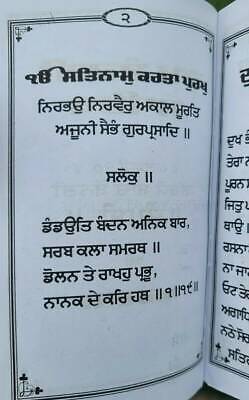 ੨
ੴ ਸਤਿਨਾਮੁ ਕਰਤਾ ਪੁਰਖੁ
ਨਿਰਭਉ ਨਿਰਵੈਰੁ ਅਕਾਲ ਮੂਰਤਿ
ਅਜੂਨੀ ਸੈਭੰ ਗੁਰਪ੍ਰਸਾਦਿ ॥
ਸਲੋਕੁ ॥
ਡੰਡਉਤਿ ਬੰਦਨ ਅਨਿਕ ਬਾਰ,
ਸਰਬ ਕਲਾ ਸਮਰਥ ॥
ਡੋਲਨ ਤੇ ਰਾਖਹੁ ਪ੍ਰਭੂ,
ਨਾਨਕ ਦੇ ਕਰਿ ਹਥ ॥੧॥੧੯॥
ਦੁਖ ਭ
ਤੇਰਾ ਨ
ਪੂਰਨ
ਜਿਤੁ
ਥਾਉ ॥